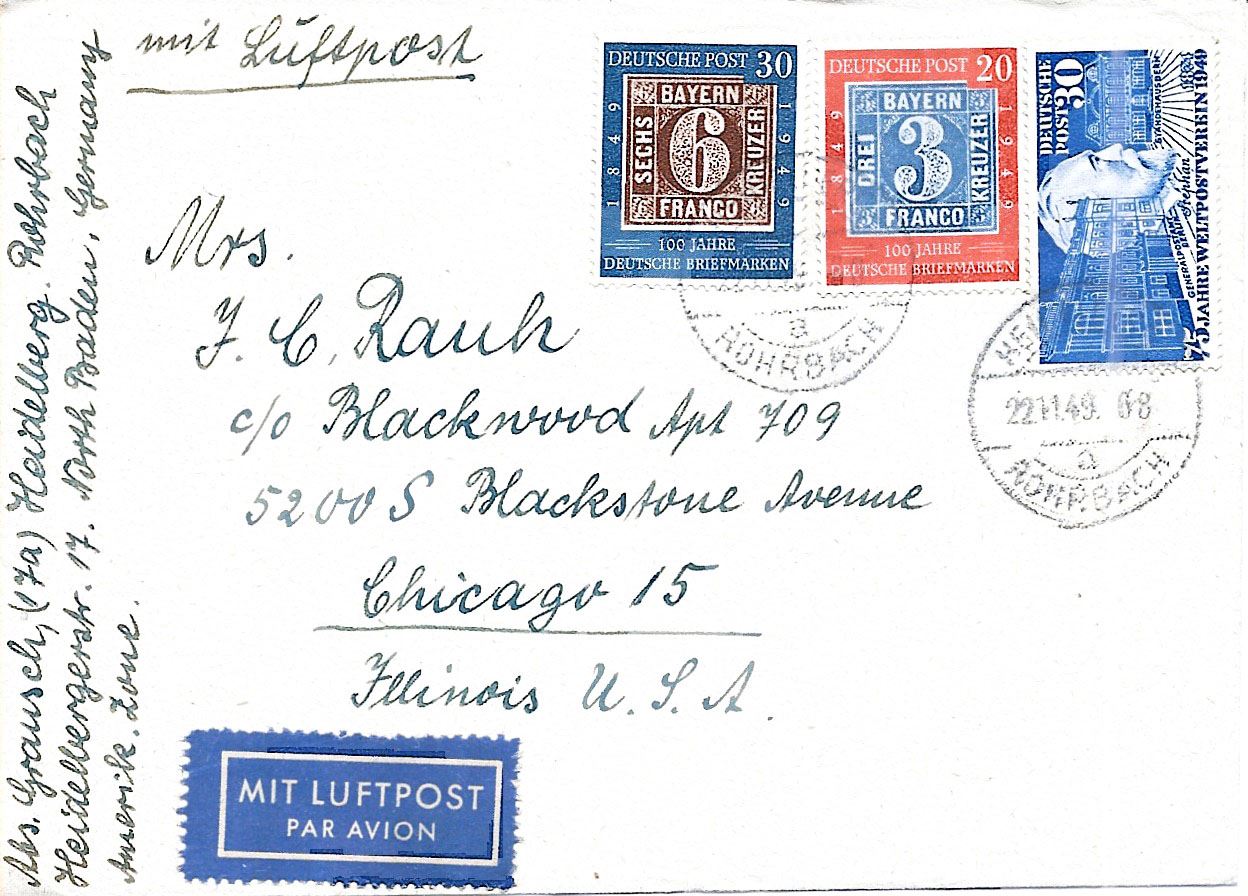 mit Luftpost
Mrs.
J. C. Rauh
c/o Blackwood Apt 709
5200 S Blackstone Avenue
Chicago 15
Illinois U. S. A.
Abs. Grausch, (17a) Heidelberg. Rohrbach
Heidelbergerstr. 17. North Baden, Germany
Amerik. Zone.
DEUTSCHE POST 30
1849
BAYERN
SECHS
6
KREUZER
FRANCO
1949
100 JAHRE
DEUTSCHE BRIEFMARKEN
DEUTSCHE POST 20
1849
BAYERN
DREI
3
KREUZER
FRANCO
1949
100 JAHRE
DEUTSCHE BRIEFMARKEN
DEUTSCHE
POST 30
STÄNDEHAUS BERN
GENERALPOSTAMT
BERLIN
Stephan
75 JAHRE WELTPOSTVEREIN 1949
a
ROHRBACH
22.11.49. 08
a
ROHRBACH
MIT LUFTPOST
PAR AVION